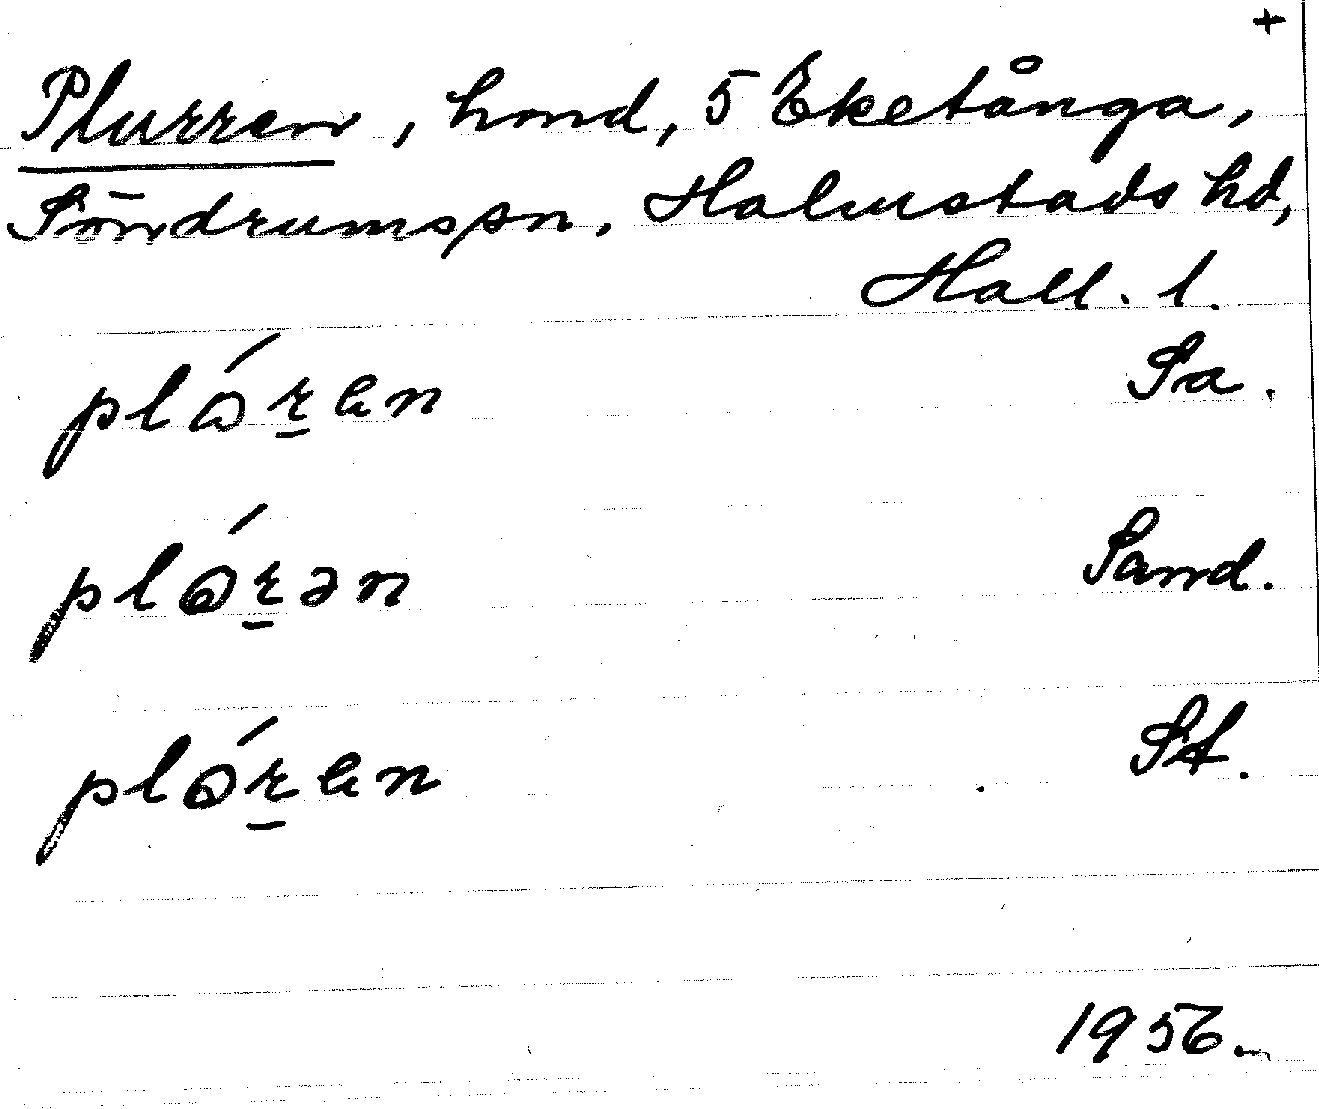 +
Plurren, hmd, 5 Eketånga,
Söndrums sn, Halmstads hd,
Hall. l.
plɷ́r̠en Sa.
plɷ́r̠ən Sand.
plɷ́r̠en St.
1956.